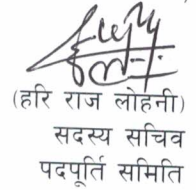 (हरि राज लोहनी)
सदस्य सचिव
पदपूर्ति समिति